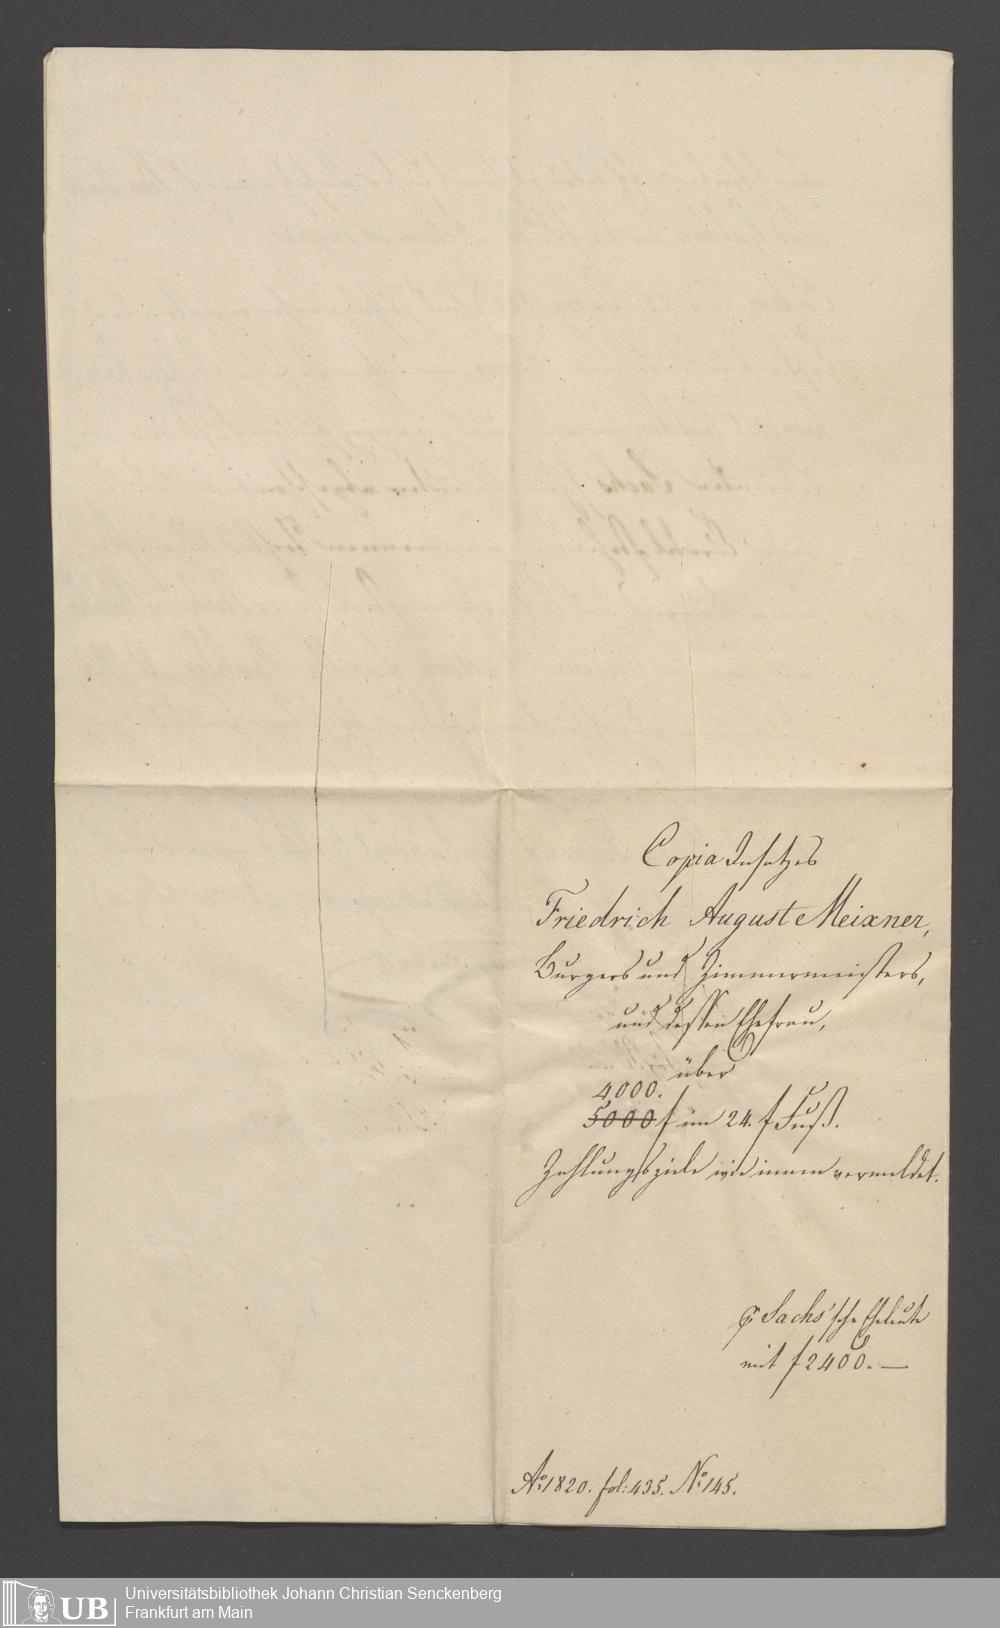 Copia Insatzes
Friedrich August Meixner,
Burgers und Zimmermeisters,
und dessen Ehefrau,
über
4000.
5000 f im 24. f Fuß.
Zahlungsziele wie innen vermeldet.
Sachs'sche Eheleute
mit f 2400.—
Ao: 1820. fol: 435. No: 145.
UB
Universitätsbibliothek Johann Christian Senckenberg
Frankfurt am Main